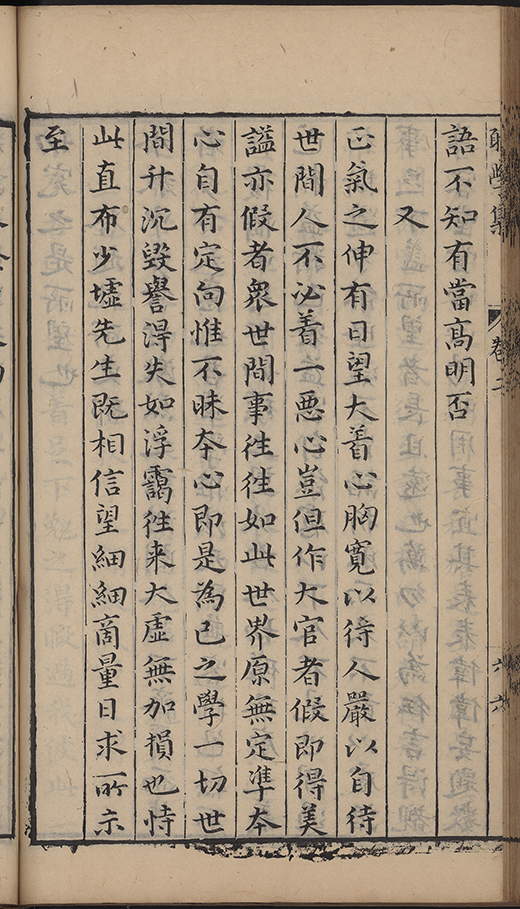 學集 卷二 六六
語不知有當高明否
又
正氣之伸有日望大着心胸寬以待人嚴以自待
世間人不必着一惡心豈但作大官者假即得美
謚亦假者衆世間事徃徃如此世界原無定凖本
心自有定向惟不昧本心即是為己之學一切世
間升沉毀譽淂失如浮靄徃来大虛無加損也恃
此直布少墟先生既相信望細細商量日求所示
至